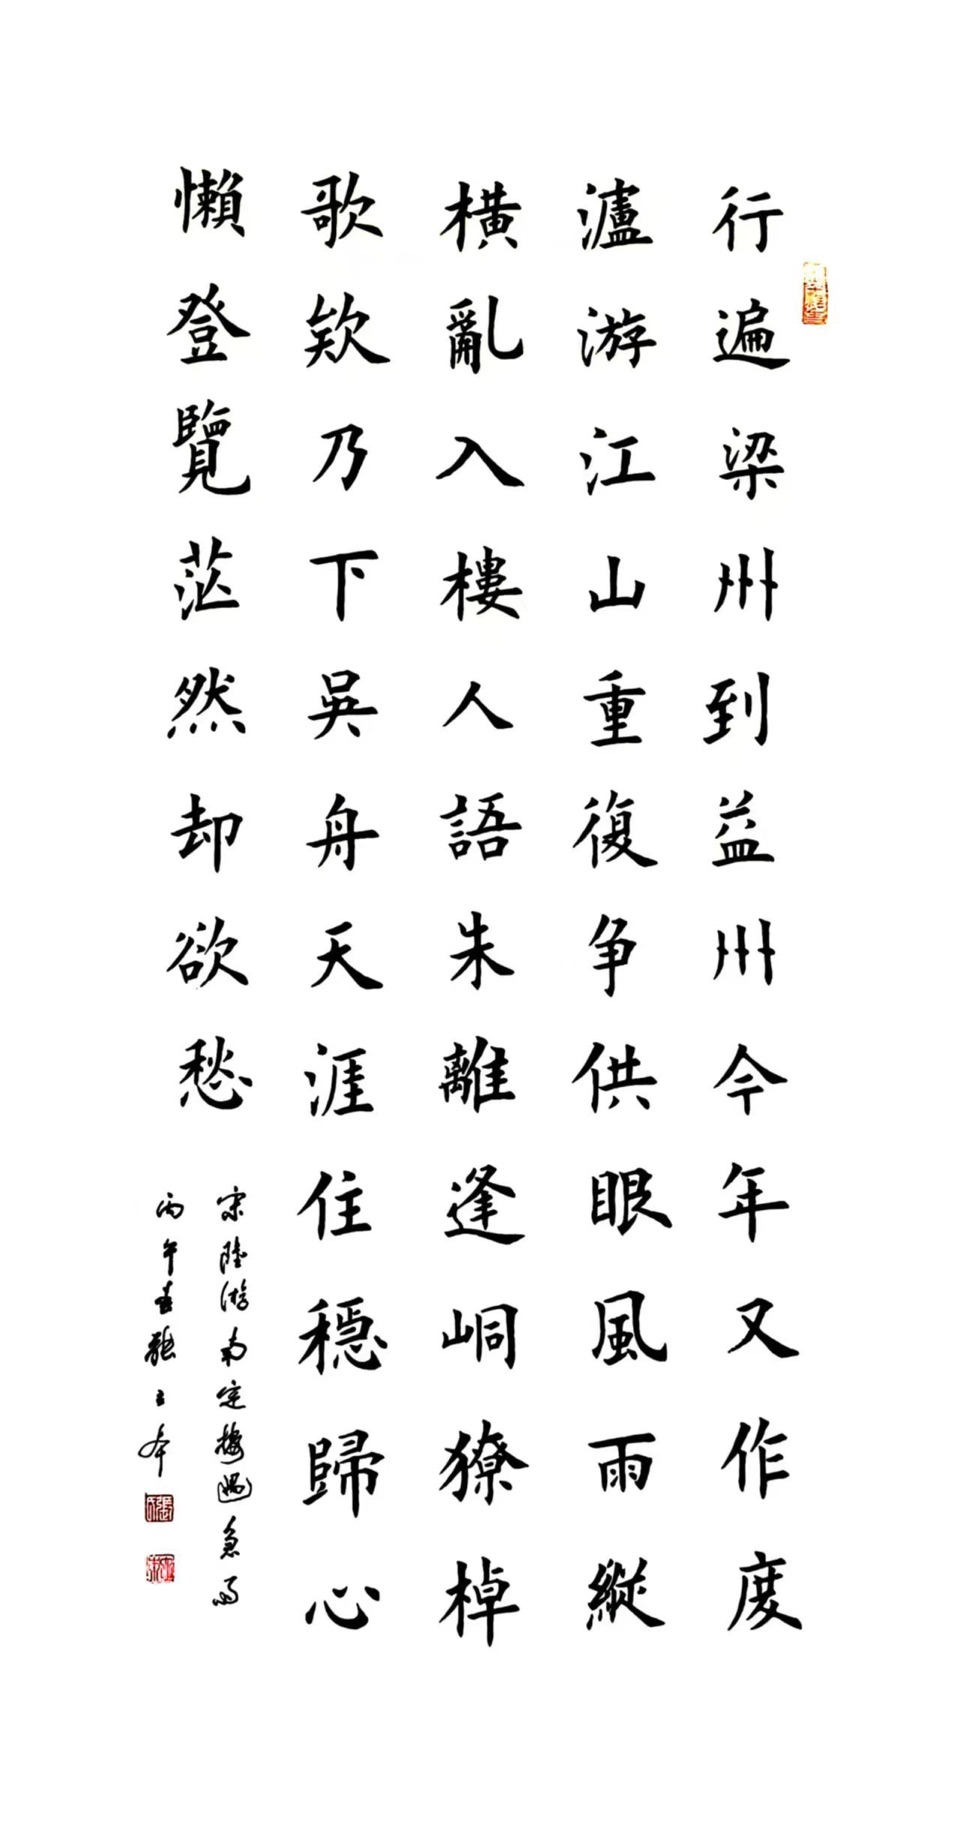 行遍梁州到益州今年又作度
瀘游江山重復争供眼風雨縱
橫亂入樓人語朱離逢峒獠棹
歌欵乃下吳舟天涯住穩歸心
懶登覽茫然却欲愁
宋陸游南定樓遇急雨
丙午春張立本